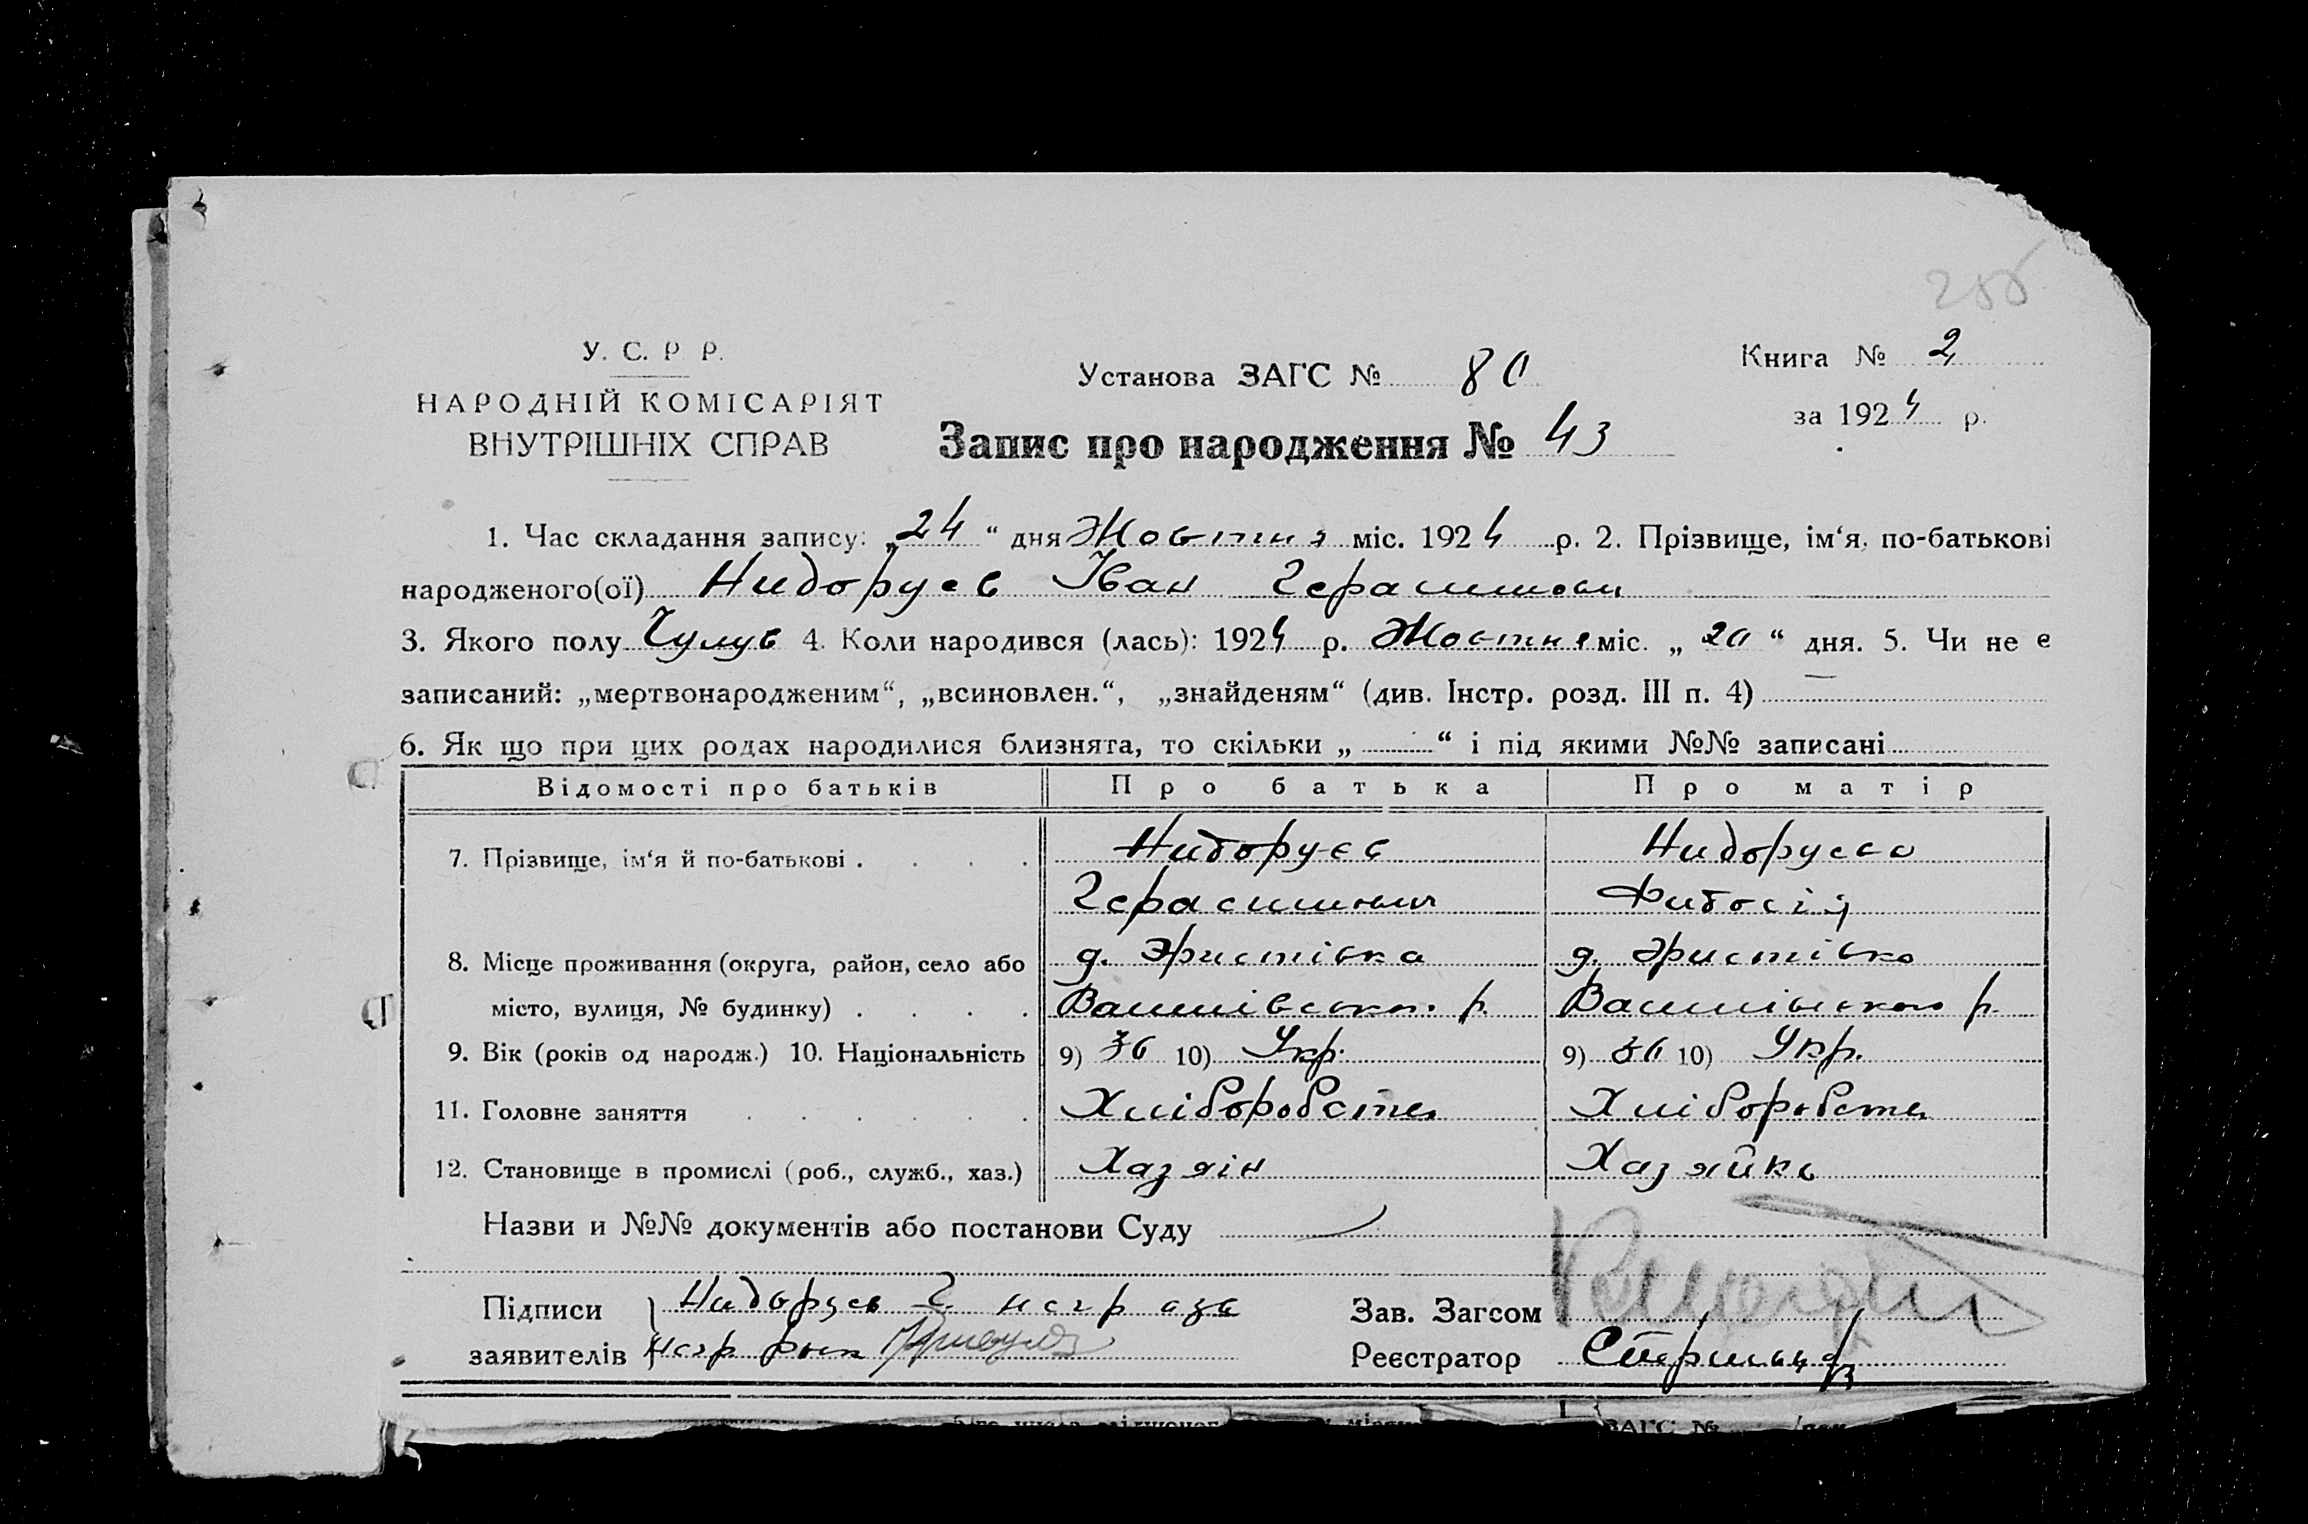 255
У. С. Р Р.
Установа ЗАГС № 80
Книга № 2
НАРОДНІЙ КОМІСАРІЯТ
за 1924 р.
ВНУТРІШНІХ СПРАВ
Запис про народження № 43
1. Час складання запису: „24“ дня Жовтня міс. 1924 р. 2. Прізвище, ім‘я, по-батькові
народженого(ої) Нидоруєв Іван Герасимови
3. Якого полу Чулув 4. Коли народився (лась): 1924 р. Жовтня міс. „20“ дня. 5. Чи не є
записаний: „мертвонародженим“, „всиновлен.“, „знайденям“ (див. Інстр. розд. III п. 4) —
6. Як що при цих родах народилися близнята, то скільки „ “ і під якими №№ записані
Відомості про батьків Про батька Про матір
7. Прізвище, ім‘я й по-батькові Нидоруєв Нидоруєва
Герасим Фидосія
8. Місце проживання (округа, район, село або д. Эристівка д. Эристівка
місто, вулиця, № будинку) р. р.
9. Вік (років од народж.) 10. Національність 9) 36 10) Укр. 9) 10) Укр.
11. Головне заняття Хліборобств Хліборобств
12. Становище в промислі (роб., служб., хаз.) Хазяін Хазяйка
Назви и №№ документів або постанови Суду —
Підписи Нидоруєв Г. негр аза Зав. Загсом
заявителів негр Реєстратор
ЗАГС №